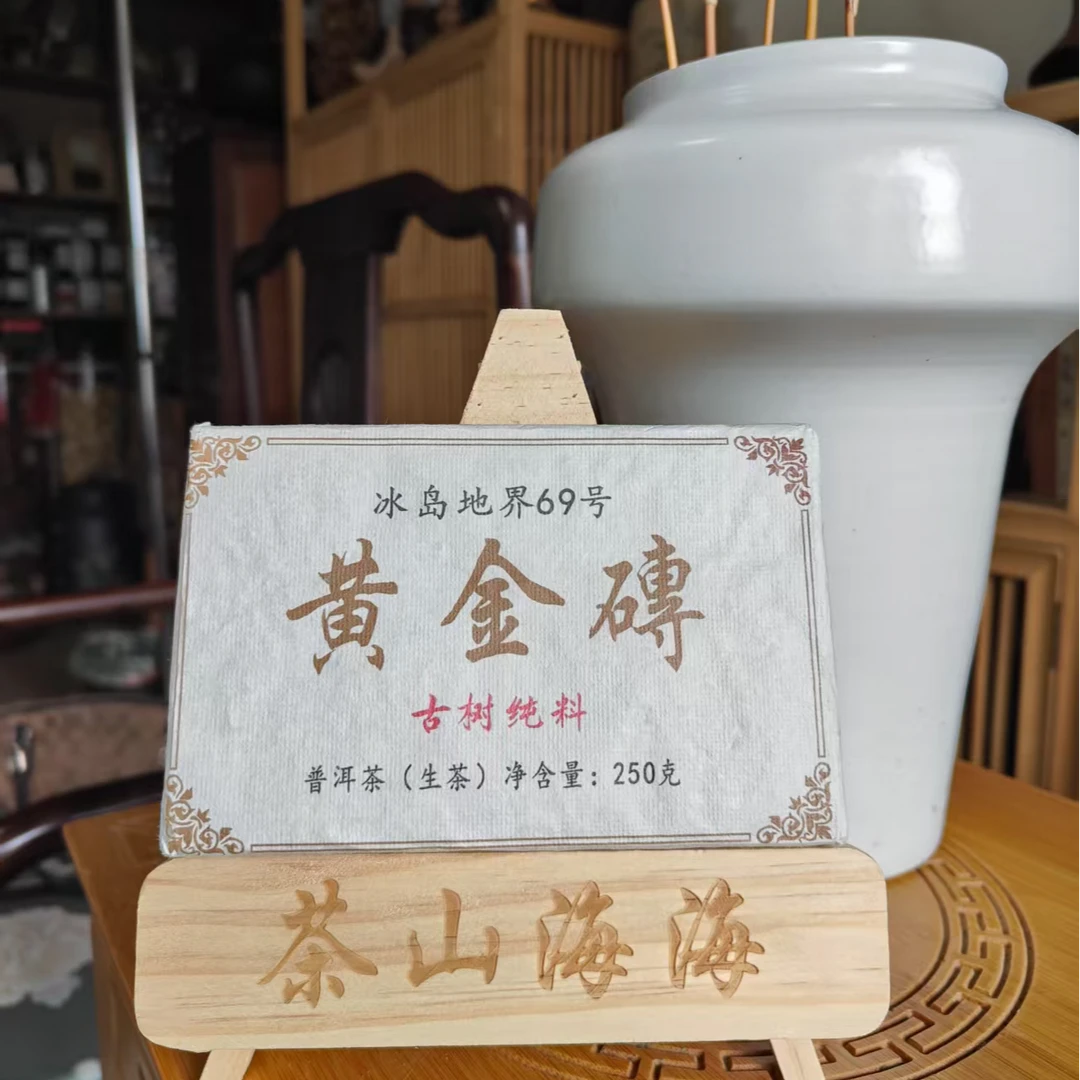 冰岛地界69号
黄金磚
古树纯料
普洱茶（生茶）净含量：250克
茶山海海